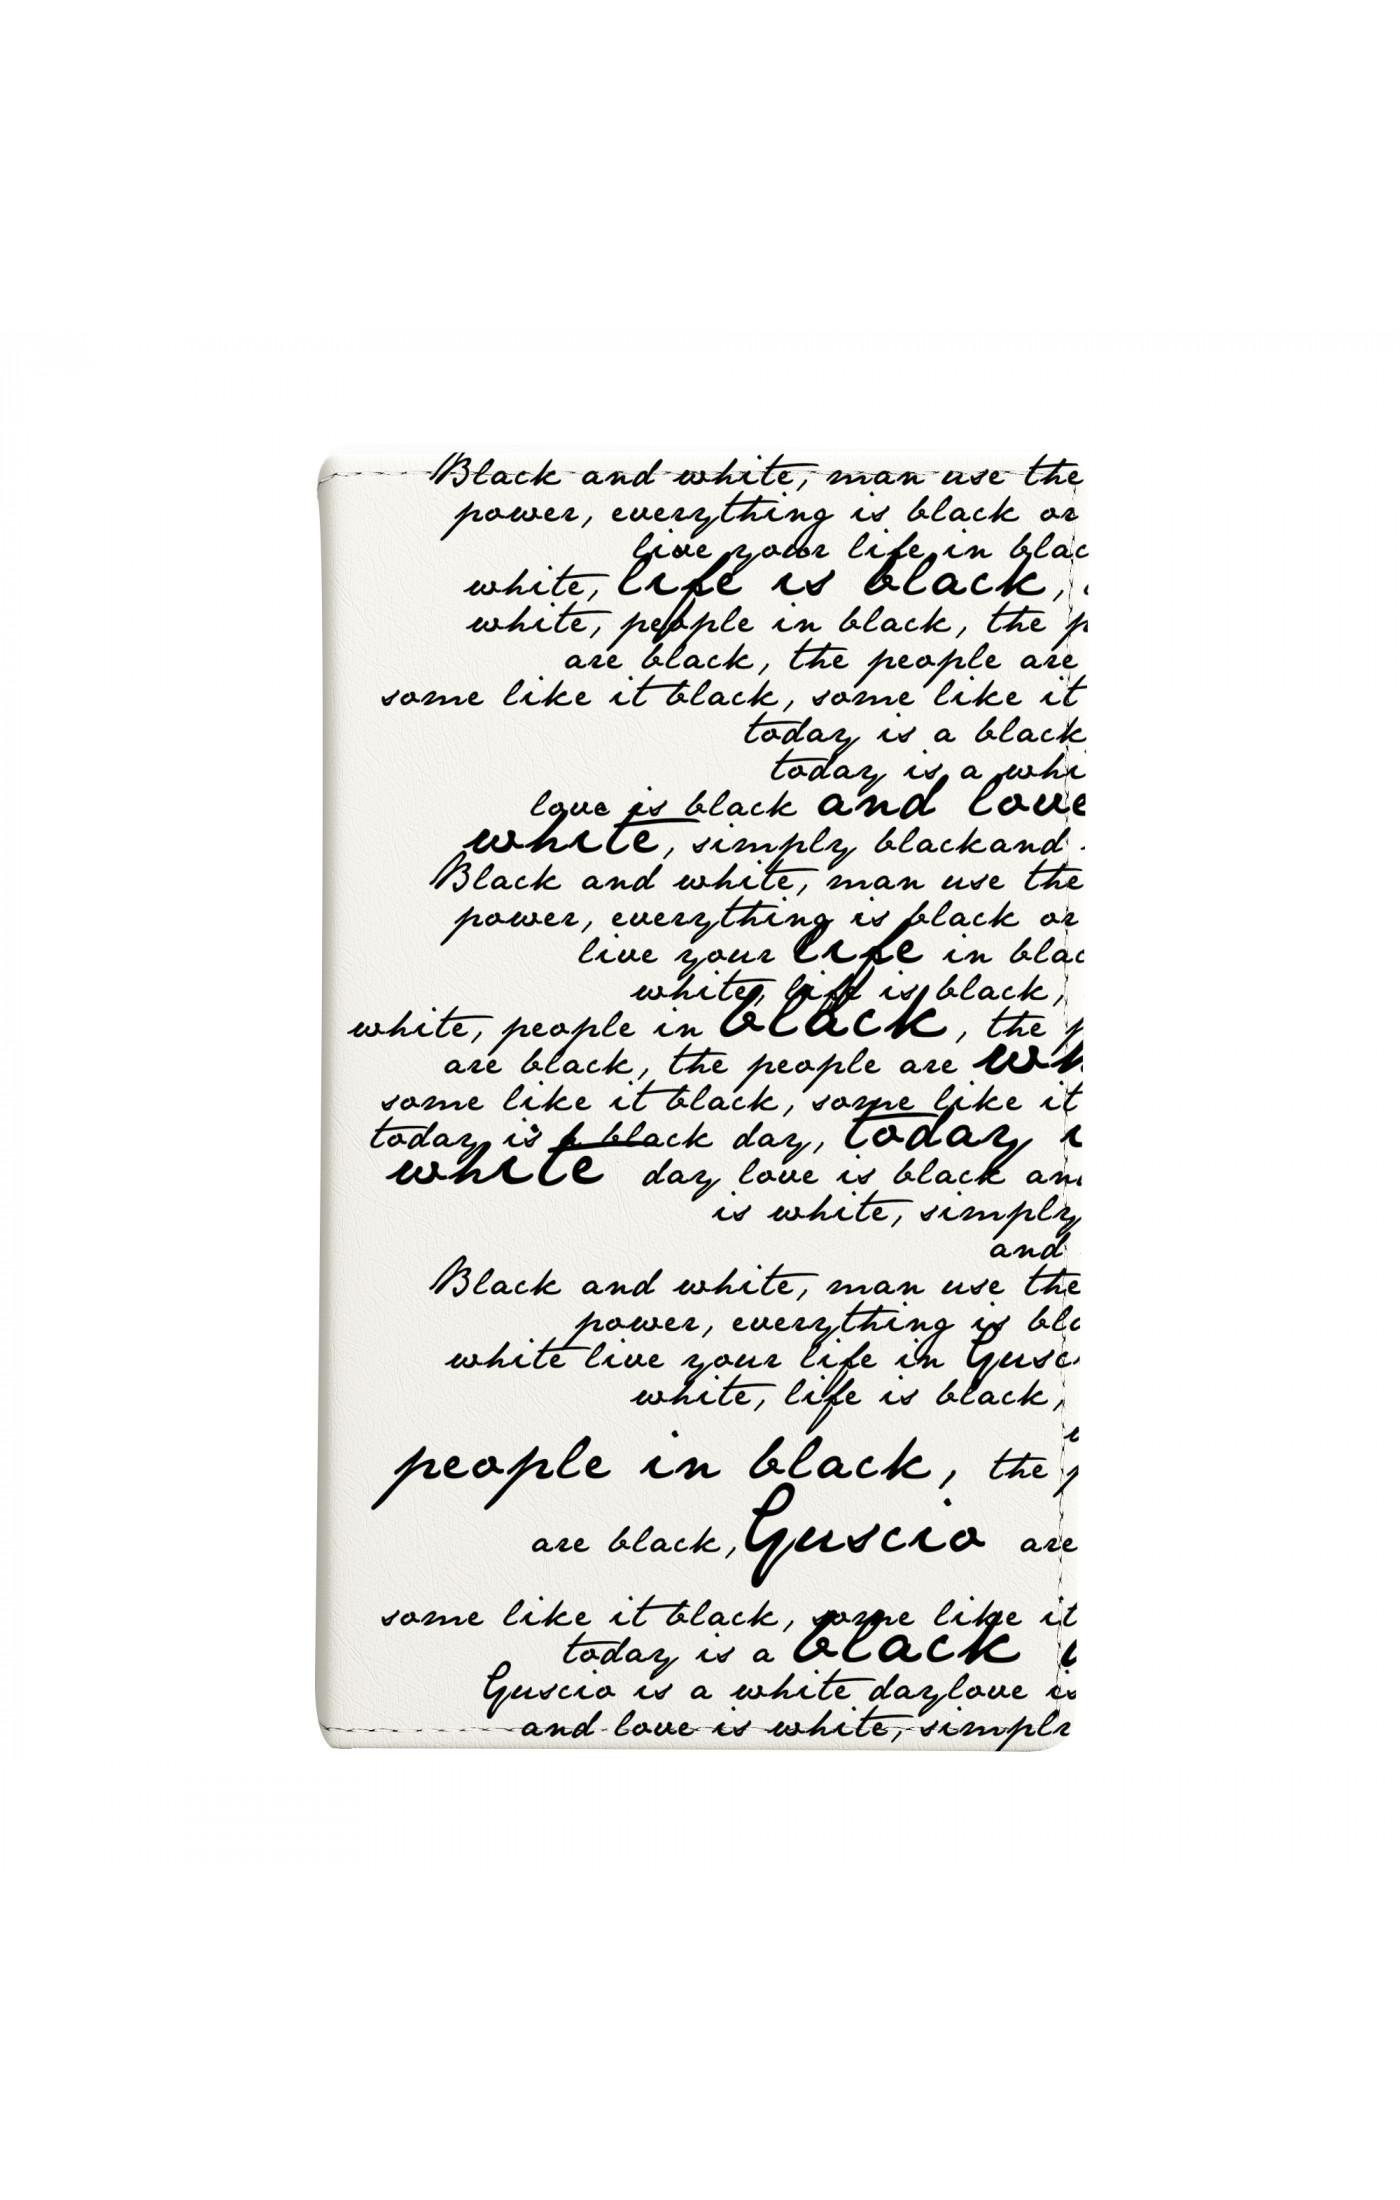 Black and white, man use the
power, everything is black or
live your life in blac
white, life is black,
white, people in black, the p
are black, the people are
some like it black, some like it
today is a black
today is a whi
love is black and love
white, simply blackand
Black and white, man use the
power, everything is black or
live your life in blac
white, life is black,
white, people in black, the p
are black, the people are wh
some like it black, some like it
today is a black day, today i
white day love is black an
is white, simply
and
Black and white, man use the
power, everything is bla
white live your life in Gusc
white, life is black,
people in black, the p
are black, Guscio are
some like it black, some like it
today is a black
Guscio is a white daylove is
and love is white, simply